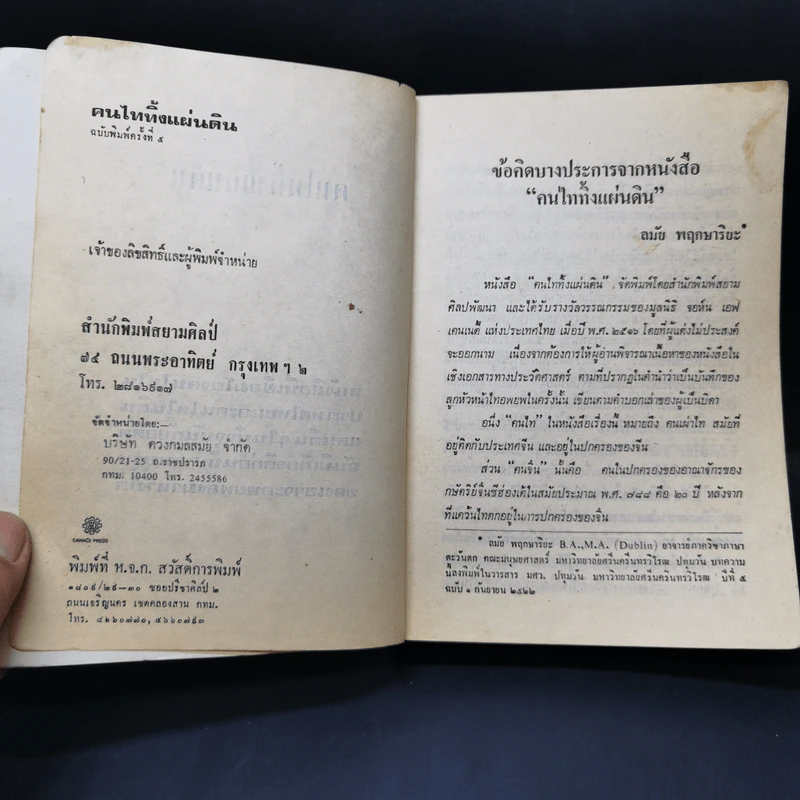 คนไททิ้งแผ่นดิน
ฉบับพิมพ์ครั้งที่ ๕
เจ้าของลิขสิทธิ์และผู้พิมพ์จำหน่าย
สำนักพิมพ์สยามศิลป์
๗๕ ถนนพระอาทิตย์ กรุงเทพ ฯ ๒
โทร. ๒๘๑๖๙๑๗
จัดจำหน่ายโดย:—
บริษัท ดวงกมลสมัย จำกัด
90/21-25 ถ.ราชปรารภ
กทม. 10400 โทร. 2455586
SAWADI PRESS
พิมพ์ที่ ห.จ.ก. สวัสดิ์การพิมพ์
๑๘๐๙/๒๙–๓๐ ซอยปรีชาศิลป์ ๒
ถนนเจริญนคร เขตคลองสาน กทม.
โทร. ๔๒๖๐๗๗๐, ๔๖๖๐๗๙๓
ข้อคิดบางประการจากหนังสือ
“คนไททิ้งแผ่นดิน”
ลมัย พฤกษาริยะ*
หนังสือ “คนไททิ้งแผ่นดิน” จัดพิมพ์โดยสำนักพิมพ์สยาม
ศิลปพัฒนา และได้รับรางวัลวรรณกรรมของมูลนิธิ จอห์น เอฟ
เคนเนดี้ แห่งประเทศไทย เมื่อปี พ.ศ. ๒๕๑๖ โดยที่ผู้แต่งไม่ประสงค์
จะออกนาม เนื่องจากต้องการให้ผู้อ่านพิจารณาเนื้อหาของหนังสือใน
เชิงเอกสารทางประวัติศาสตร์ ตามที่ปรากฏในคำนำว่าเป็นบันทึกของ
ลูกหัวหน้าไทอพยพในครั้งนั้น เขียนตามคำบอกเล่าของผู้เป็นบิดา
อนึ่ง “คนไท” ในหนังสือเรื่องนี้ หมายถึง คนเผ่าไท สมัยที่
อยู่ติดกับประเทศจีน และอยู่ในปกครองของจีน
ส่วน “คนจีน” นั้นคือ คนในปกครองของอาณาจักรของ
กษัตริย์จิ๋นซีฮ่องเต้ในสมัยประมาณ พ.ศ. ๗๔๘ คือ ๒๐ ปี หลังจาก
ที่แคว้นไทตกอยู่ในการปกครองของจีน
* ลมัย พฤกษาริยะ B.A.,M.A. (Dublin) อาจารย์ภาควิชาภาษา
ตะวันตก คณะมนุษยศาสตร์ มหาวิทยาลัยศรีนครินทรวิโรฒ ปทุมวัน บทความ
นี้ลงพิมพ์ในวารสาร มศว. ปทุมวัน มหาวิทยาลัยศรีนครินทรวิโรฒ ปีที่ ๕
ฉบับ ๑ กันยายน ๒๕๒๒